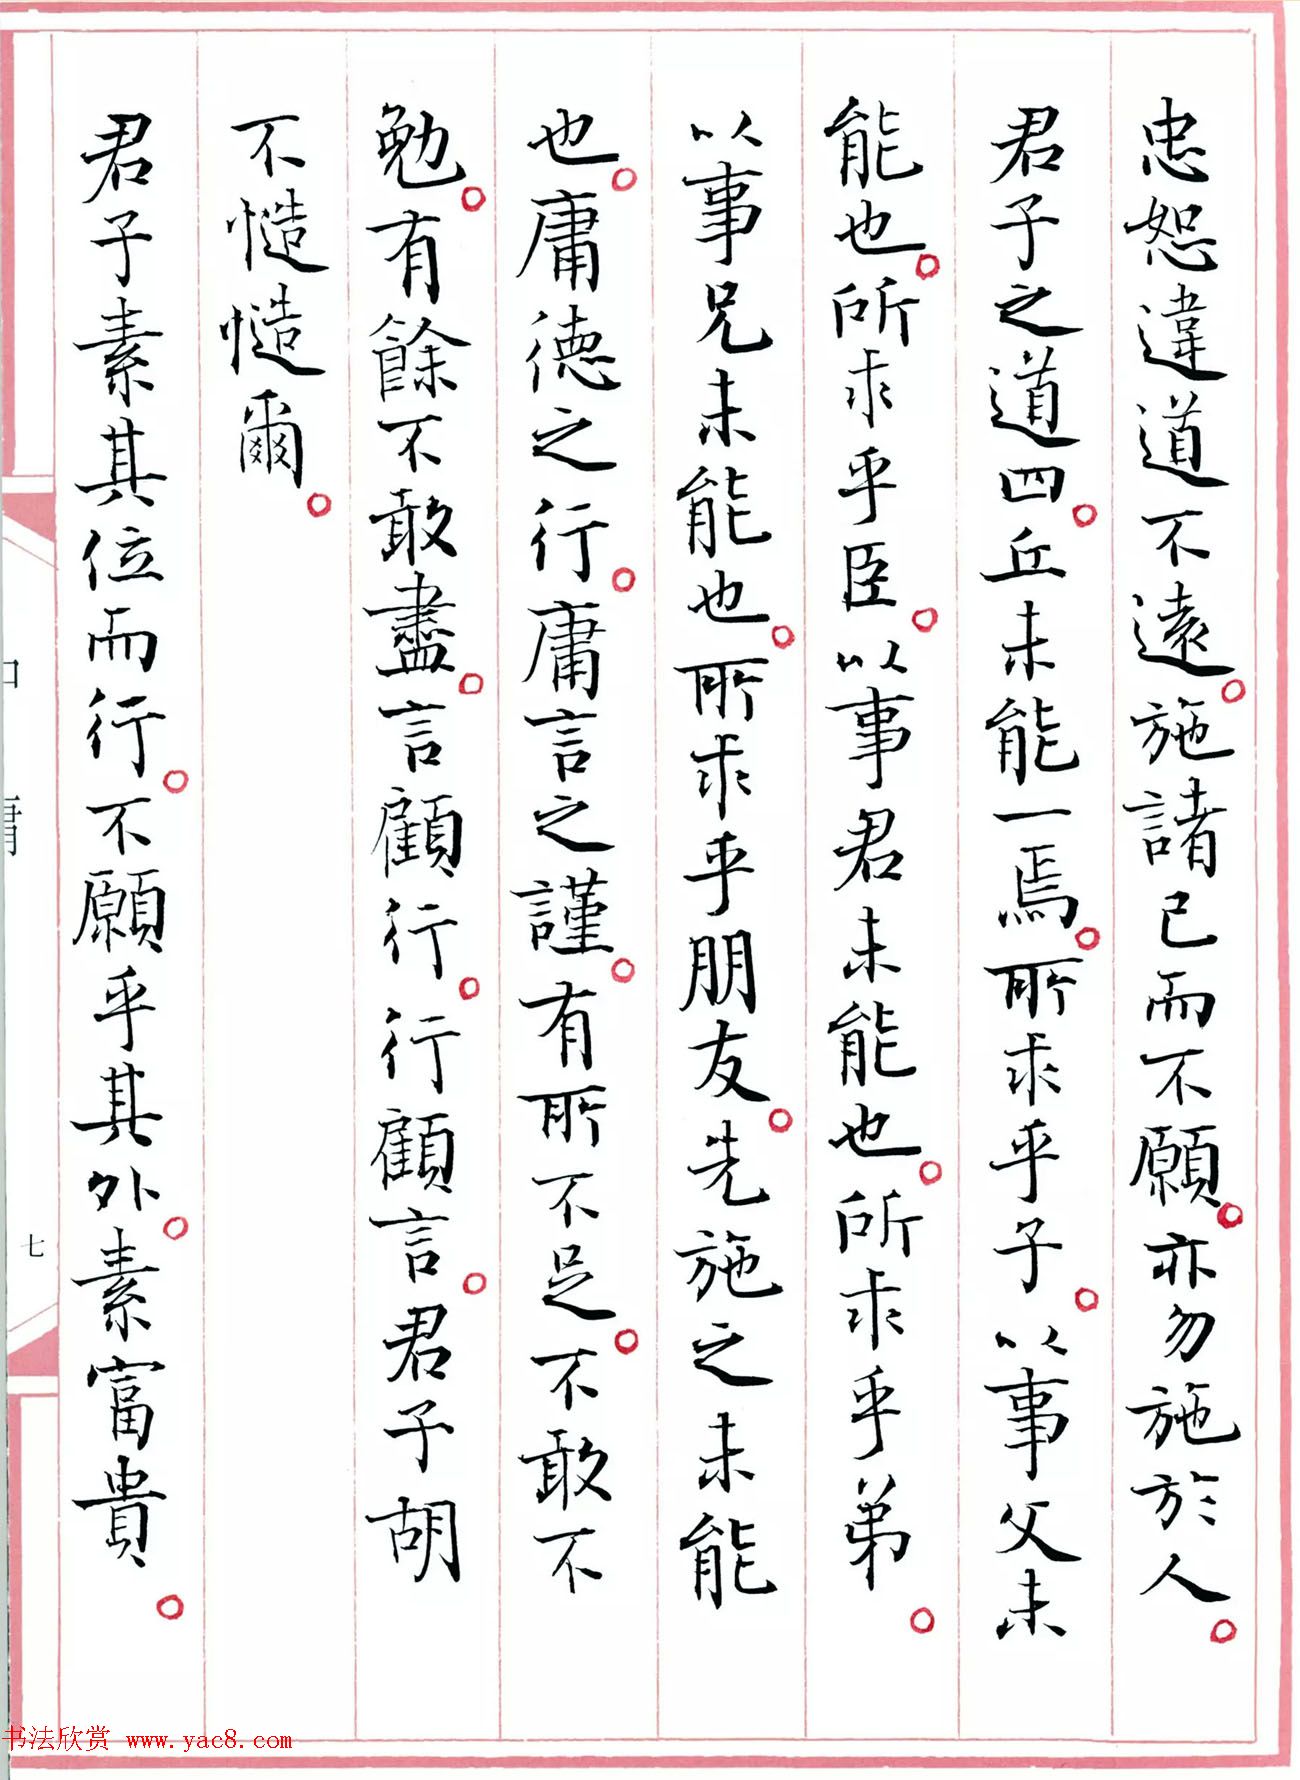 忠恕違道不遠。施諸己而不願。亦勿施於人。
君子之道四。丘未能一焉。所求乎子。以事父未
能也。所求乎臣。以事君未能也。所求乎弟。
以事兄未能也。所求乎朋友。先施之未能
也。庸德之行。庸言之謹。有所不足。不敢不
勉。有餘不敢盡。言顧行。行顧言。君子胡
不慥慥爾。
君子素其位而行。不願乎其外。素富貴。
七
书法欣赏 www.yac8.com